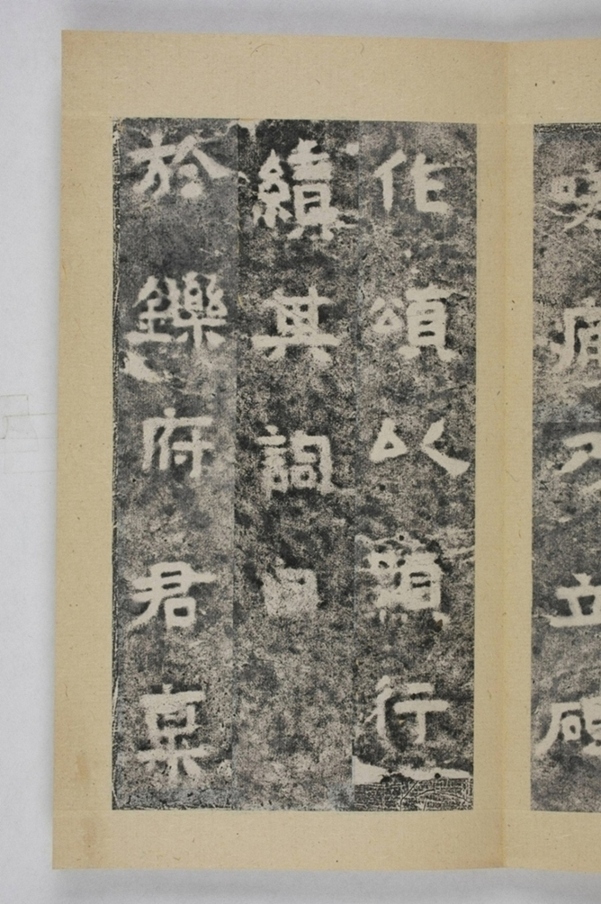 痛乃立碑
作頌以顯行
績其詞曰
於鑠府君稟